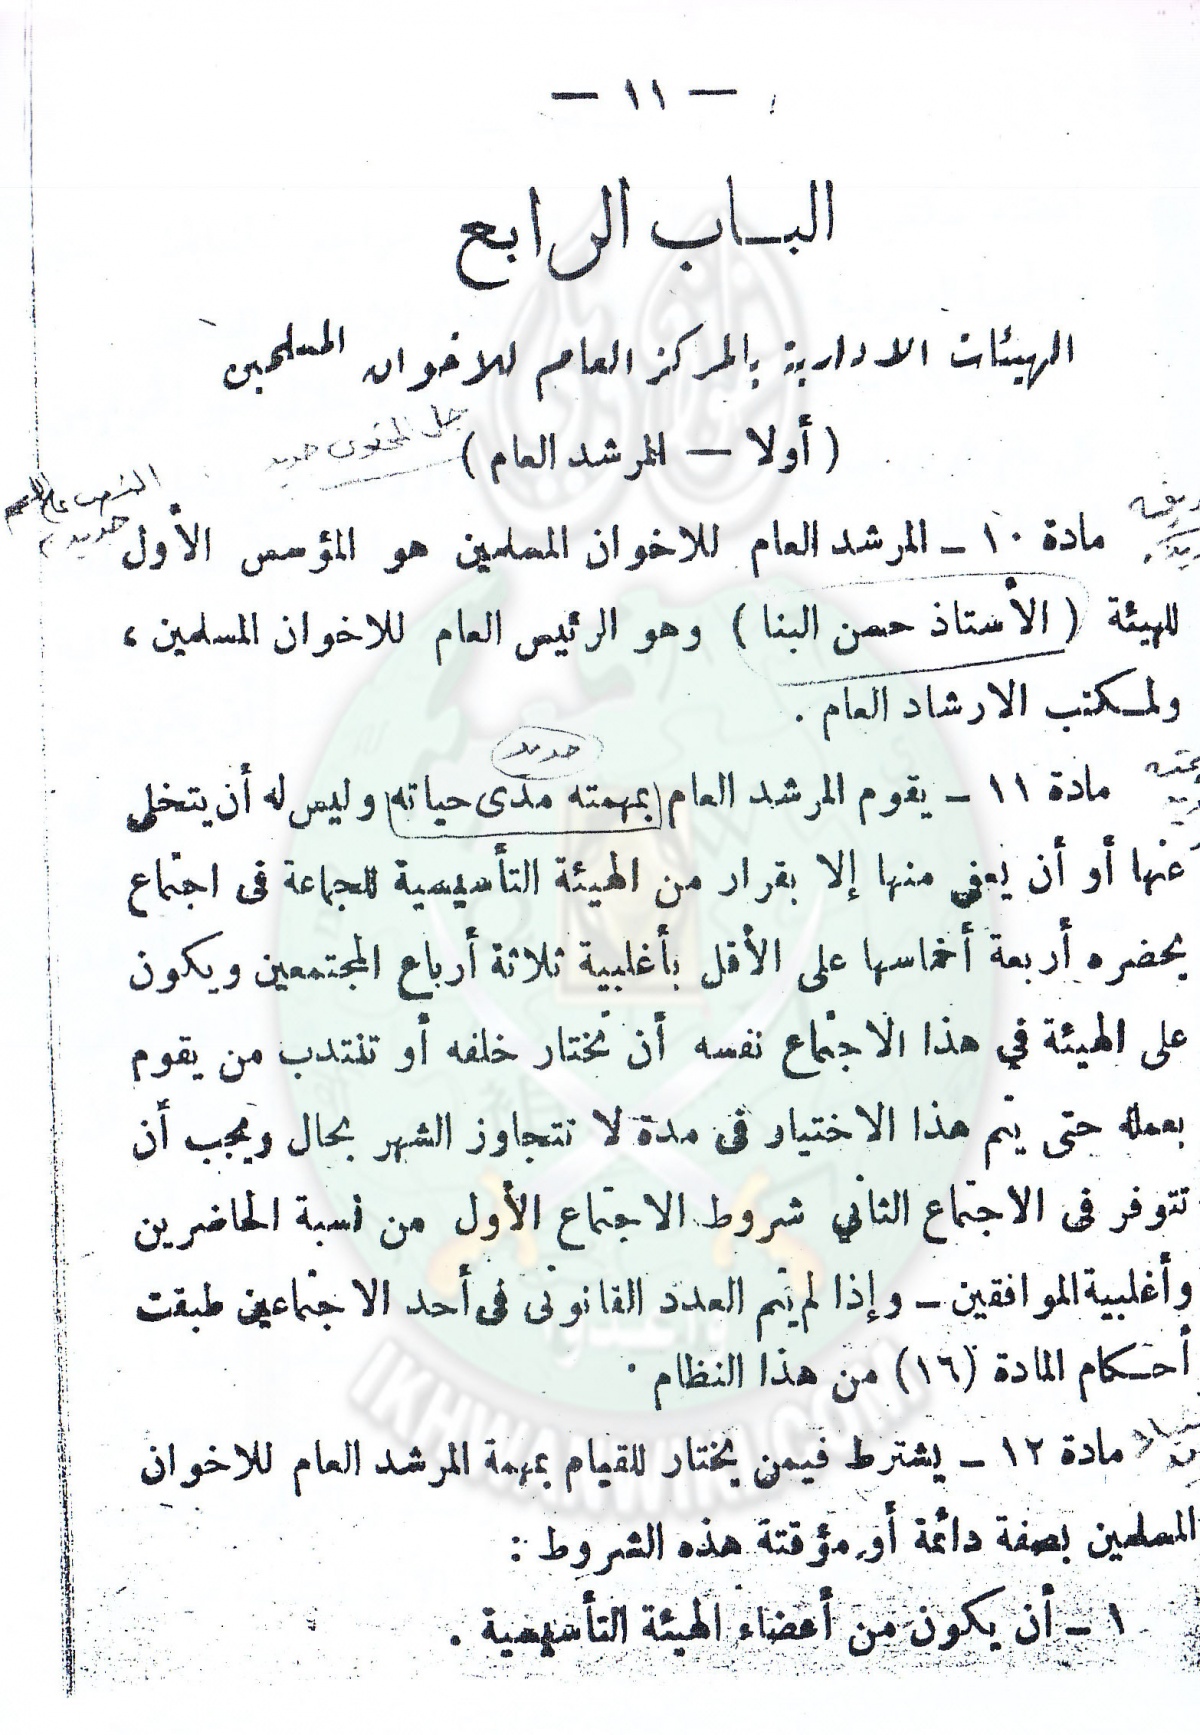 — ١١ —
البـاب الرابع
الهيئات الادارية بالمركز العام للاخوان المسلمين
( أولا — المرشد العام )
جديد
جديد
مادة ١٠ ـ المرشد العام للاخوان المسلمين هو المؤسس الأول
للهيئة ( الأستاذ حسن البنا ) وهو الرئيس العام للاخوان المسلمين ،
ولمكتب الارشاد العام .
جديد
مادة ١١ ـ يقوم المرشد العام بمهمته مدى حياته وليس له أن يتخلى
عنها أو أن يعفى منها إلا بقرار من الهيئة التأسيسية للجماعة فى اجتماع
يحضره أربعة أخماسها على الأقل بأغلبية ثلاثة أرباع المجتمعين ويكون
على الهيئة في هذا الاجتماع نفسه أن تختار خلفه أو تنتدب من يقوم
بعمله حتى يتم هذا الاختيار فى مدة لا تتجاوز الشهر بحال ويجب أن
تتوفر فى الاجتماع الثاني شروط الاجتماع الأول من نسبة الحاضرين
وأغلبية الموافقين ـ وإذا لم يتم العدد القانونى فى أحد الاجتماعين طبقت
أحكام المادة (١٦) من هذا النظام .
مادة ١٢ ـ يشترط فيمن يختار للقيام بمهمة المرشد العام للاخوان
المسلمين بصفة دائمة أو مؤقتة هذه الشروط :
١ ـ أن يكون من أعضاء الهيئة التأسيسية .
IKHWANWIKI.COM